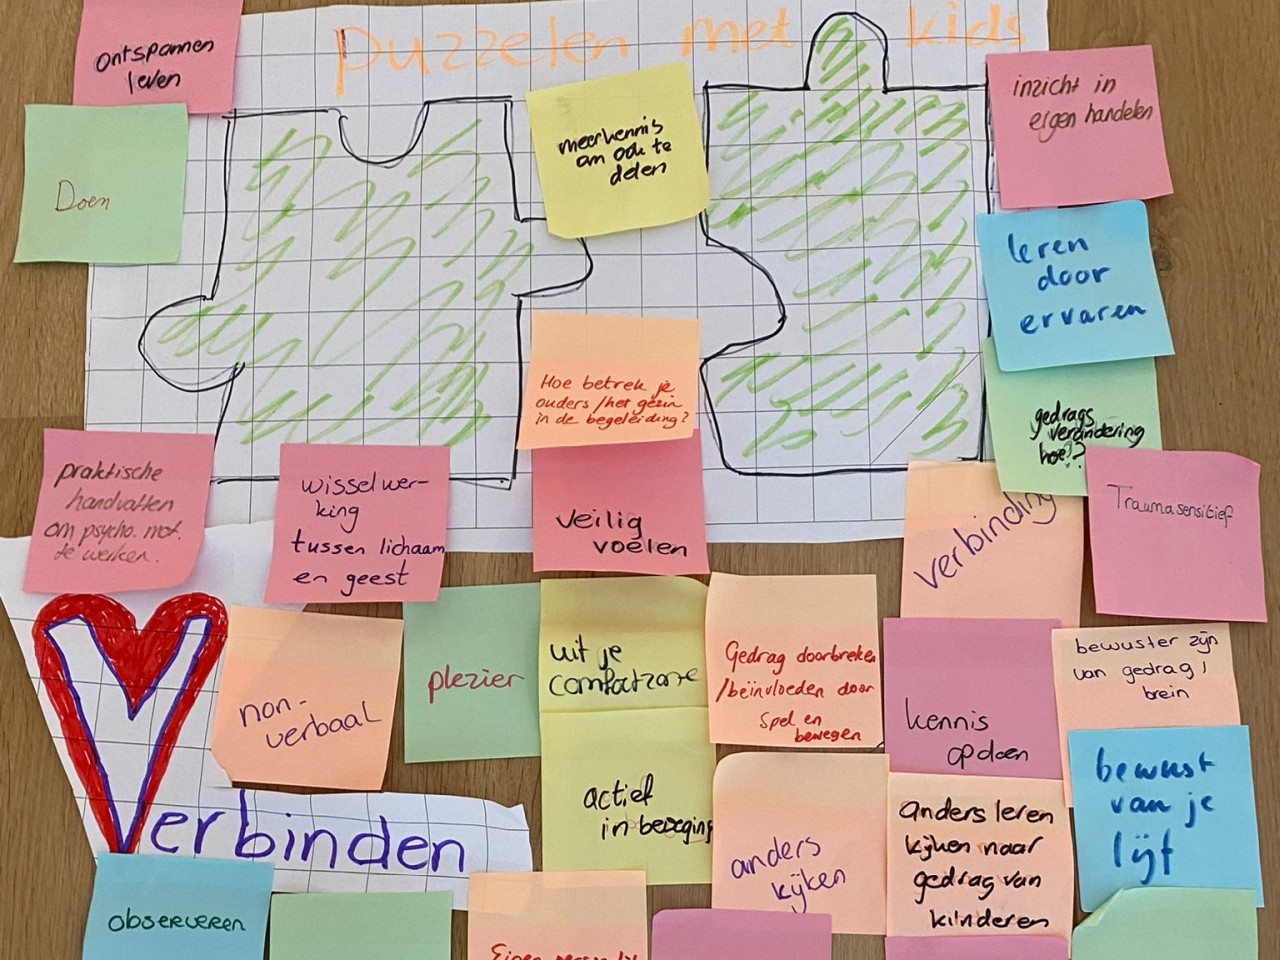 puzzelen met kids
ontspannen
leven
Doen
meer kennis
om ook te
delen
inzicht in
eigen handelen
leren
door
ervaren
Hoe betrek je
ouders/het gezin
in de begeleiding?
gedrags
verandering
hoe??
praktische
handvatten
om psycho. mot.
te werken.
wisselwer-
king
tussen lichaam
en geest
veilig
voelen
verbinding
Traumasensitief
non-
verbaal
plezier
uit je
comfortzone
Gedrag doorbreken
/beïnvloeden door
spel en
bewegen
kennis
opdoen
bewuster zijn
van gedrag/
brein
actief
in beweging
anders
kijken
anders leren
kijken naar
gedrag van
kinderen
bewust
van je
lijf
Verbinden
observeren
Eigen